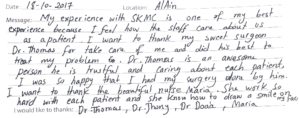 Date 18-10-2017 Location: AlAin
Message: My experience with SKMC is one of my best
experience because I feel how the staff care about us
as a patient I want to thank my sweet surgeon
Dr. Thomas for take care of me and did his best to
treat my problem to Dr. Thomas is an awesome
person he is trustful and caring about each patient,
I was so happy that I had my surgery done by him.
I want to thank the beautiful nurse Maria, she work so
hard with each patient and she know how to draw a smile on
I would like to thanks: Dr Thomas, Dr Jhony, Dr Doaa, Maria